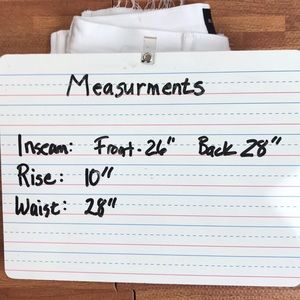 Measurments
Inseam: Front-26" Back 28"
Rise: 10"
Waist: 28"